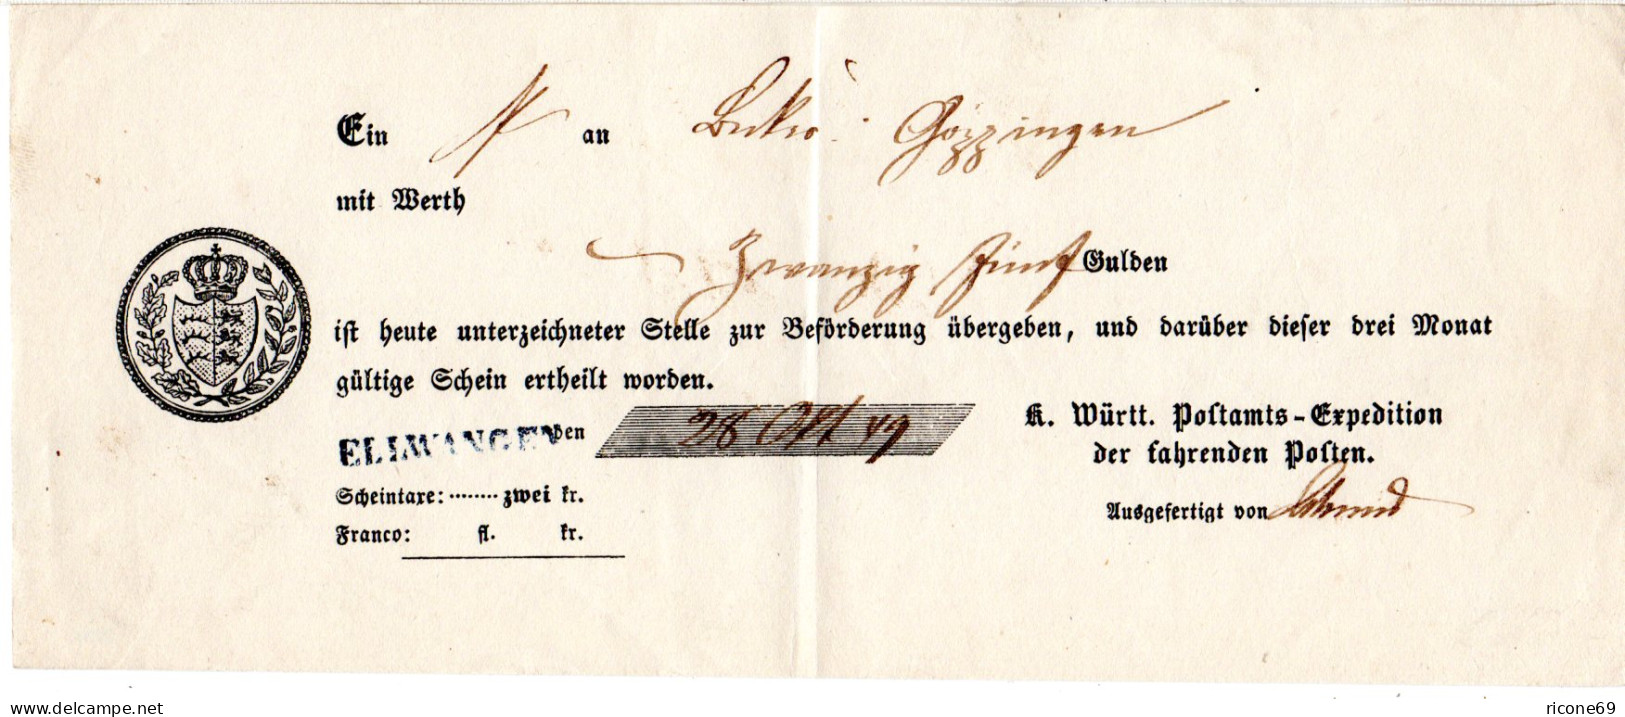 Ein an Göppingen
mit Werth
Zwanzig Fünf Gulden
ist heute unterzeichneter Stelle zur Beförderung übergeben, und darüber dieser drei Monat
gültige Schein ertheilt worden.
ELLWANGEN den 28 Okt 49
K. Württ. Postamts-Expedition
der fahrenden Posten.
Scheintaxe: ........ zwei kr.
Ausgefertigt von
Franco: fl. kr.
www.delcampe.net
ricone69